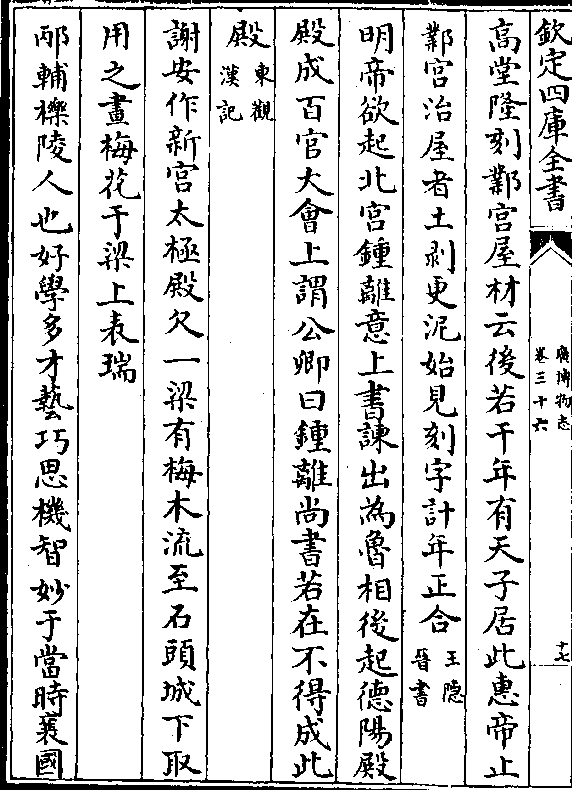 欽定四庫全書
廣博物志
卷三十六
十七
高堂隆刻鄴宮屋材云後若干年有天子居此惠帝止
鄴宮治屋者土剥更泥始見刻字計年正合王隠晉書
明帝欲起北宮鍾離意上書諫出為魯相後起德陽殿
殿成百官大會上謂公卿曰鍾離尚書若在不得成此
殿東觀漢記
謝安作新宮太極殿欠一梁有梅木流至石頭城下取
用之畫梅花于梁上表瑞
邴輔櫟陵人也好學多才藝巧思機智妙于當時襄國